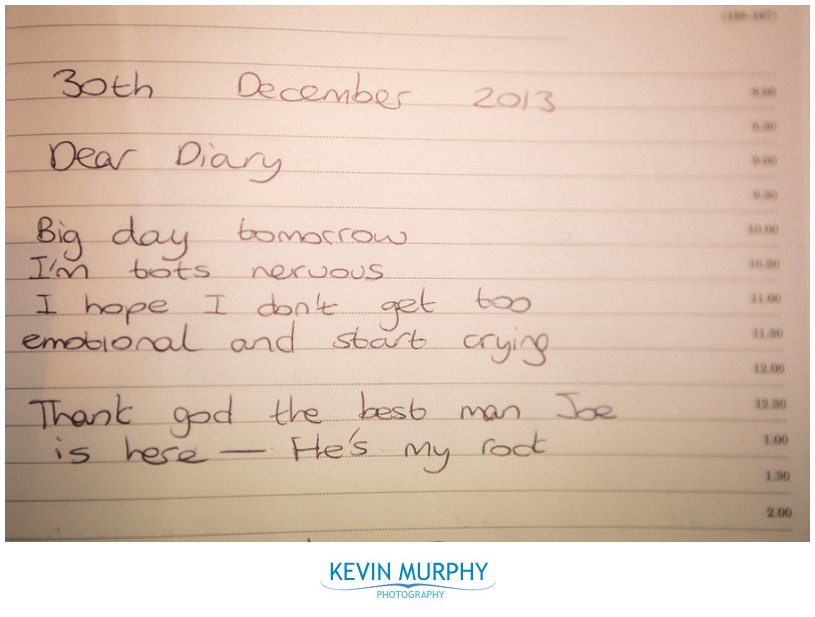 (188-167)
30th December 2013
8.00
8.30
Dear Diary
9.00
9.30
Big day tomorrow
10.00
I'm tots nervous
10.30
I hope I don't get too
11.00
emotional and start crying
11.30
12.00
Thank god the best man Joe
12.30
is here — He's my rock
1.00
1.30
2.00
KEVIN MURPHY
PHOTOGRAPHY